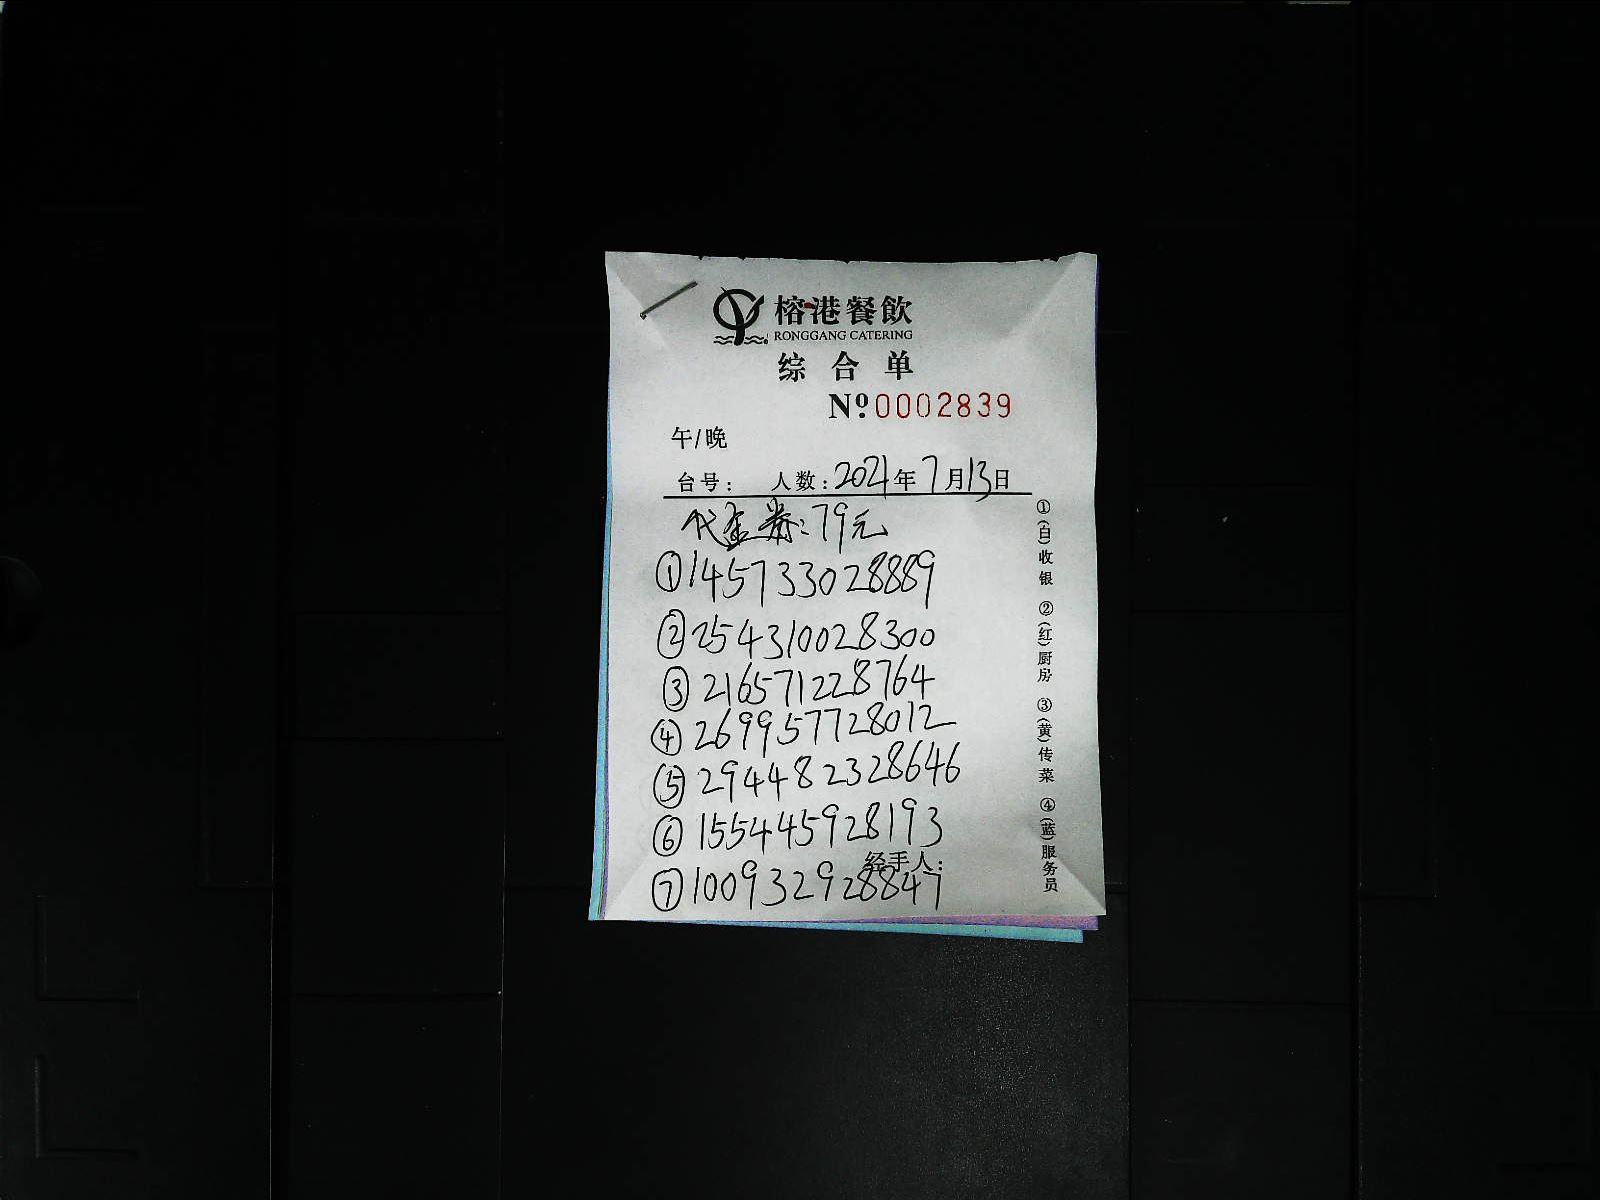 榕港餐飲
RONGGANG CATERING
综合单
Nº0002839
午/晚
台号： 人数：2021年7月13日
代金券：79元
①145733028889
②254310028300
③216571228764
④269957728012
⑤294482328646
⑥155445928193
经手人：
⑦100932928847
①(白)收银 ②(红)厨房 ③(黄)传菜 ④(蓝)服务员